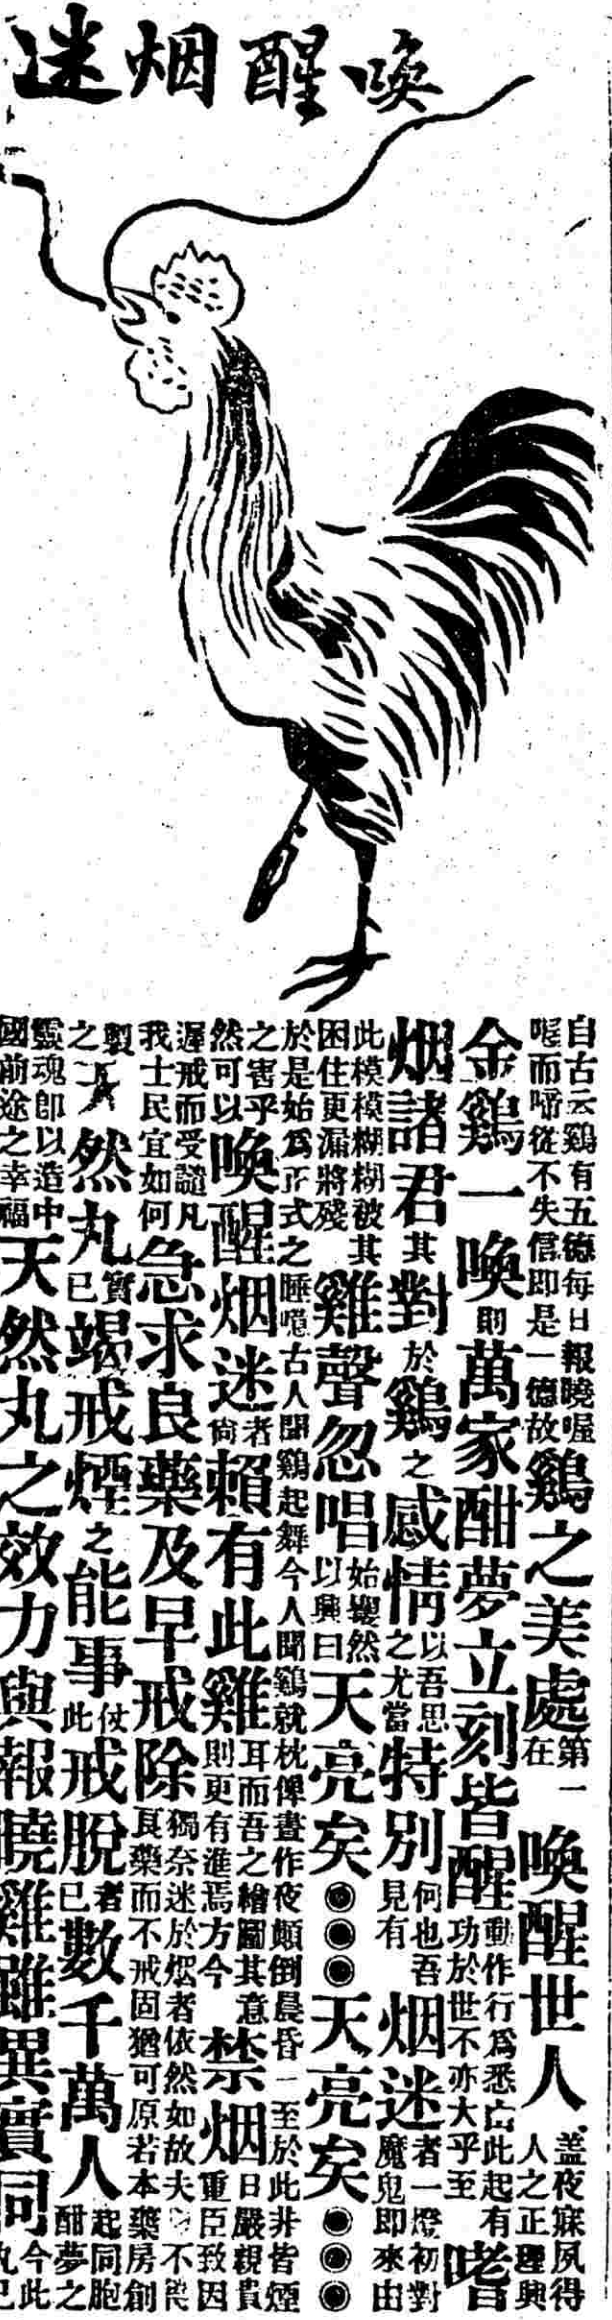 喚醒烟迷
自古云鷄有五德每日報曉喔喔而啼從不失信即是一德故鷄之美處第一在喚醒世人蓋夜寐夙得人之正理興
金鷄一喚則萬家酣夢立刻皆醒動作行爲悉由此起有功於世不亦大乎至嗜
烟諸君其對於鷄之感情以吾思之尤當特別何也吾見有烟迷者一燈初對魔鬼即來由
此模模糊糊被其困住更漏將殘雞聲忽唱始矍然以興曰天亮矣◉◉◉天亮矣◉◉◉
於是始爲正式之睡噫古人聞鷄起舞今人聞鷄就枕俾晝作夜顛倒晨昏一至於此非皆煙
之害乎然可以喚醒烟迷者尙賴有此雞耳而吾之繪圖其意則更有進焉方今禁烟日嚴親貴重臣致因
遲戒而受譴凡我士民宜如何急求良藥及早戒除獨奈迷於烟者依然如故夫不良藥而不戒固猶可原若本藥房創
製之天然丸實已竭戒煙之能事仗此戒脫者已數千萬人起同胞酣夢之
靈魂即以造中國前途之幸福天然丸之效力與報曉雞雖異實同今此丸已